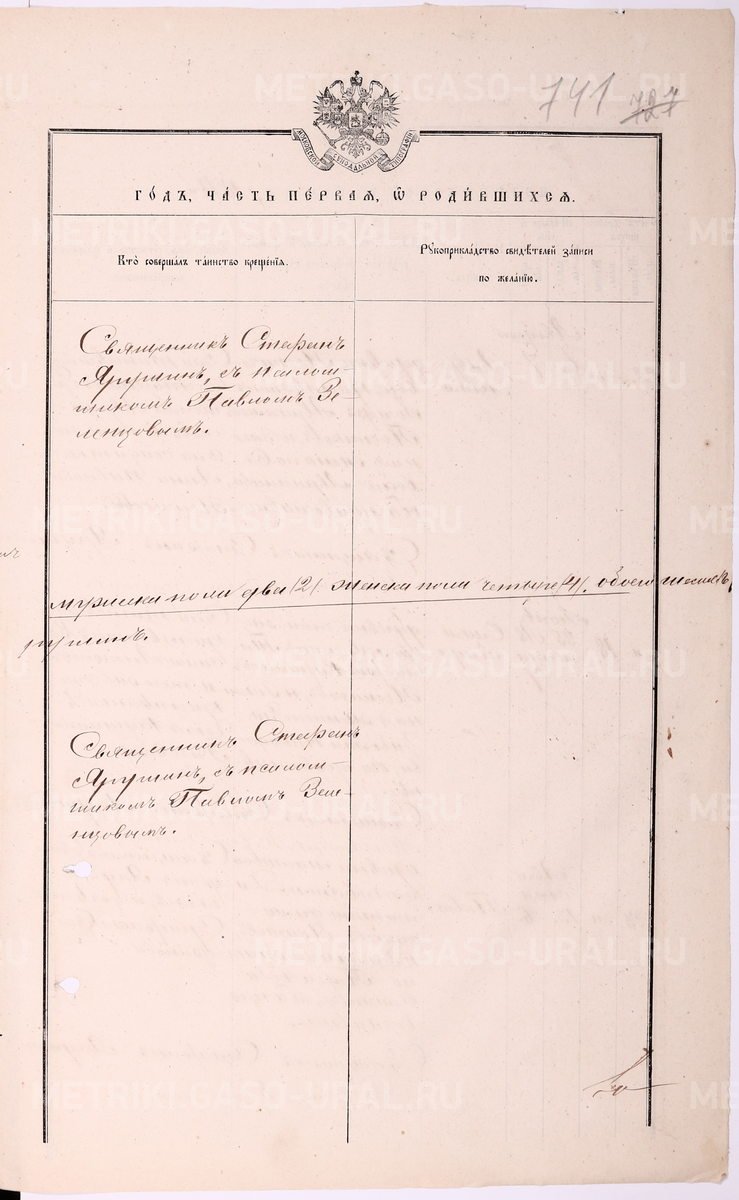 741 727
МОСКОВСКОЙ СИНОДАЛЬНОЙ ТИПОГРАФІИ
ГО́ДЪ, ЧА́СТЬ ПЕ́РВАЯ, Ѡ РОДИ́ВШИХСЯ.
Кто̀ соверша́лъ та́инство креще́нїѧ.
Рꙋкоприкла́дство свидѣ́телей за́писи
по жела́нїю.
Священникъ Стефанъ
Ярушинъ, съ псалом-
щикомъ Павломъ Зе-
ленцовымъ.
мужска пола два (2). женска пола четыре (4). обоего шесть (6)
рушинъ.
Священникъ Стефанъ
Ярушинъ, съ псалом-
щикомъ Павломъ Зеле-
нцовымъ.
METRIKI.GASO-URAL.RU